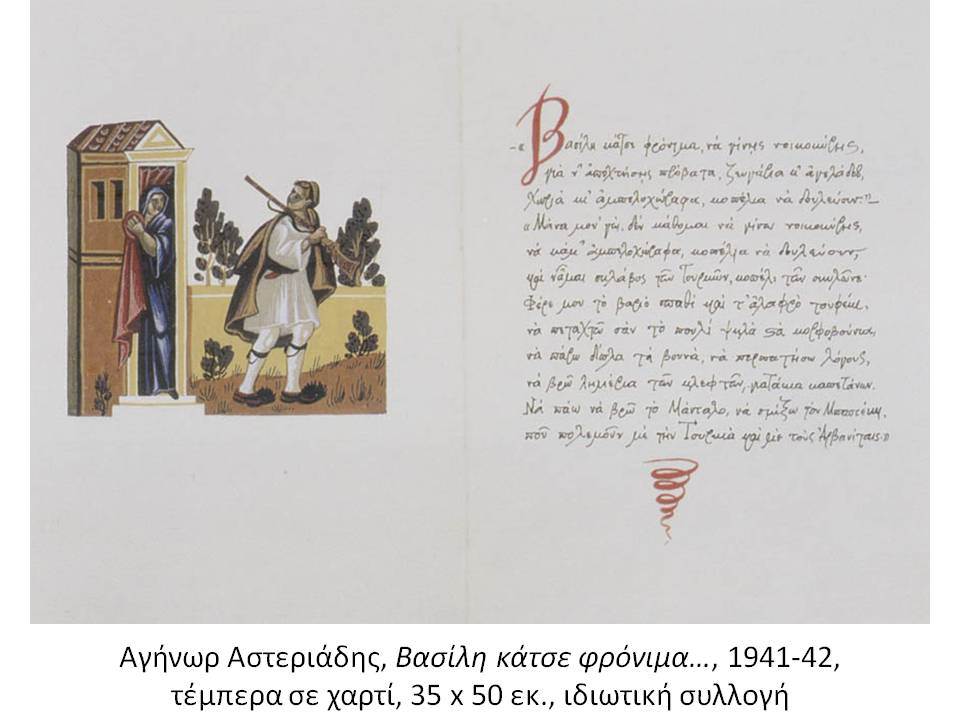 –« Βασίλη κάτσε φρόνιμα, νά γίνης νοικοκύρης,
γιά ν' ἀποχτήσης πρόβατα, ζευγάρια κ' ἀγελάδες,
χωριά κι' ἀμπελοχώραφα, κοπέλια νά δουλεύουν.»–
«Μάνα μου γώ, δέν κάθομαι νά γίνω νοικοκύρης,
νά κάμ' ἀμπελοχώραφα, κοπέλια νά δουλεύουν,
καί νἆμαι σκλάβος τῶν Τουρκῶν, κοπέλι τῶν
Φέρε μου τό βαριό σπαθί καί τ' ἀλαφρό τουφέκι,
νά πεταχτῶ σάν τό πουλί ψηλά
νά πάρω δίπλα τά βουνά, νά περπατήσω λόγους,
νά βρῶ λημέρια τῶν κλεφτῶν, γιατάκια καπετάνων.
Νά πάω νά βρῶ τό Μάνταλο, νά σμίξω τόν
πού πολεμοῦν μέ τήν Τουρκιά καί μέ τούς Ἀρβανίτες.»
Αγήνωρ Αστεριάδης, Βασίλη κάτσε φρόνιμα…, 1941-42,
τέμπερα σε χαρτί, 35 x 50 εκ., ιδιωτική συλλογή